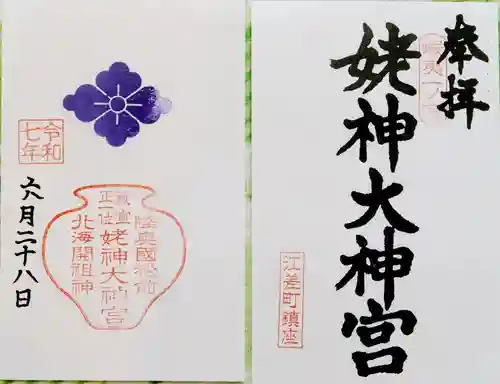 奉拝
蝦夷一之宮
姥神大神宮
江差町鎮座
陸奥國松前
姥神大神宮
正一位
北海開祖神
令和
七年
六月二十八日